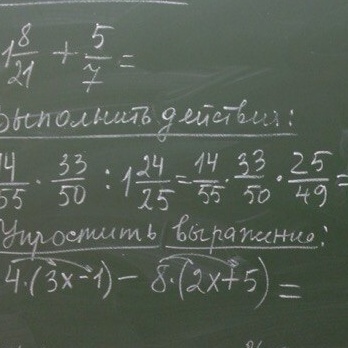 1 8/21 + 5/7 =
Выполнить действия:
14/55 · 33/50 : 1 24/25 = 14/55 · 33/50 · 25/49 =
Упростить выражение:
4·(3x-1) - 8·(2x+5) =